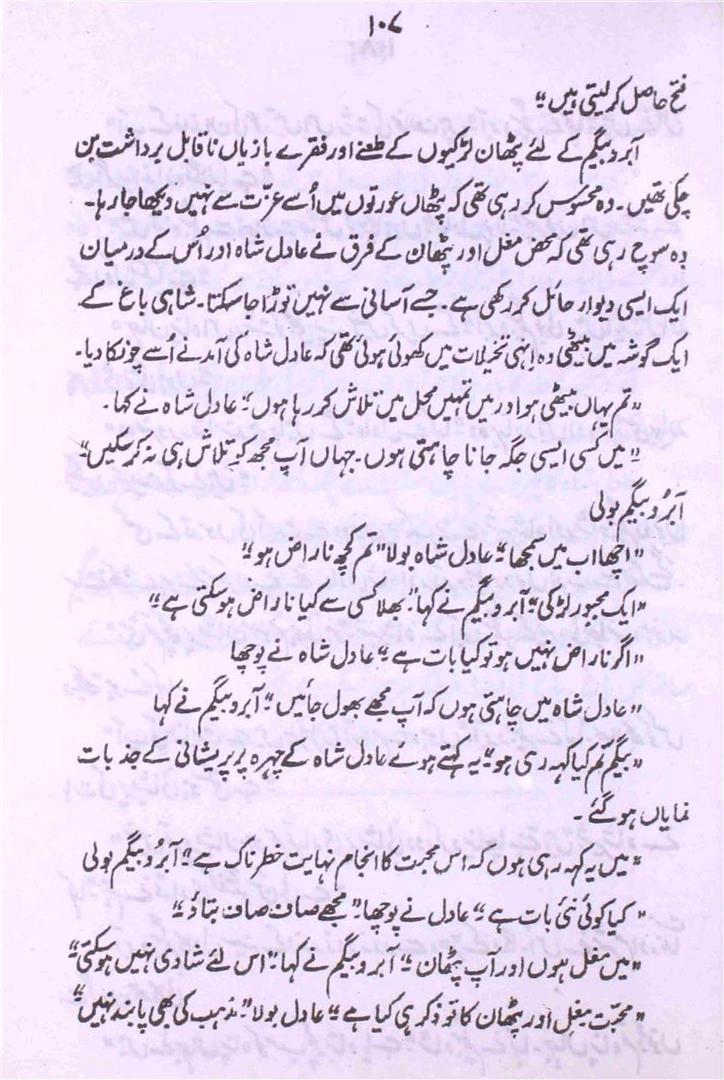 ۱۰۷
فتح حاصل کر لیتی ہیں“
آبرو بیگم کے لئے پٹھان لڑکیوں کے طعنے اور فقرے بازیاں ناقابل برداشت بن
چکی تھیں۔ وہ محسوس کر رہی تھی کہ پٹھان عورتوں میں اُسے عزّت سے نہیں دیکھا جا رہا۔
وہ سوچ رہی تھی کہ محض مغل اور پٹھان کے فرق نے عادل شاہ اور اُس کے درمیان
ایک ایسی دیوار حائل کر رکھی ہے۔ جسے آسانی سے نہیں توڑا جا سکتا۔ شاہی باغ کے
ایک گوشہ میں بیٹھی وہ انہی تخیلات میں کھوئی ہوئی تھی کہ عادل شاہ کی آمد نے اسے چونکا دیا۔
”تم یہاں بیٹھی ہو اور میں تمہیں محل میں تلاش کر رہا ہوں“ عادل شاہ نے کہا۔
”میں کسی ایسی جگہ جانا چاہتی ہوں۔ جہاں آپ مجھ کو تلاش ہی نہ کر سکیں“
آبرو بیگم بولی
”اچھا اب میں سمجھا“ عادل شاہ بولا ”تم کچھ ناراض ہو“
”ایک مجبور لڑکی“ آبرو بیگم نے کہا ”بھلا کسی سے کیا ناراض ہو سکتی ہے“
”اگر ناراض نہیں ہو تو کیا بات ہے“ عادل شاہ نے پوچھا
”عادل شاہ میں چاہتی ہوں کہ آپ مجھے بھول جائیں“ آبرو بیگم نے کہا
”بیگم تم کیا کہہ رہی ہو“ یہ کہتے ہوئے عادل شاہ کے چہرہ پر پریشانی کے جذبات
نمایاں ہو گئے۔
”میں یہ کہہ رہی ہوں کہ اس محبت کا انجام نہایت خطرناک ہے“ آبرو بیگم بولی
”کیا کوئی نئی بات ہے“ عادل نے پوچھا ”مجھے صاف صاف بتاؤ“
”میں مغل ہوں اور آپ پٹھان“ آبرو بیگم نے کہا ”اس لئے شادی نہیں ہو سکتی“
”محبّت مغل اور پٹھان کا تو ذکر ہی کیا ہے“ عادل بولا ”مذہب کی بھی پابند نہیں“